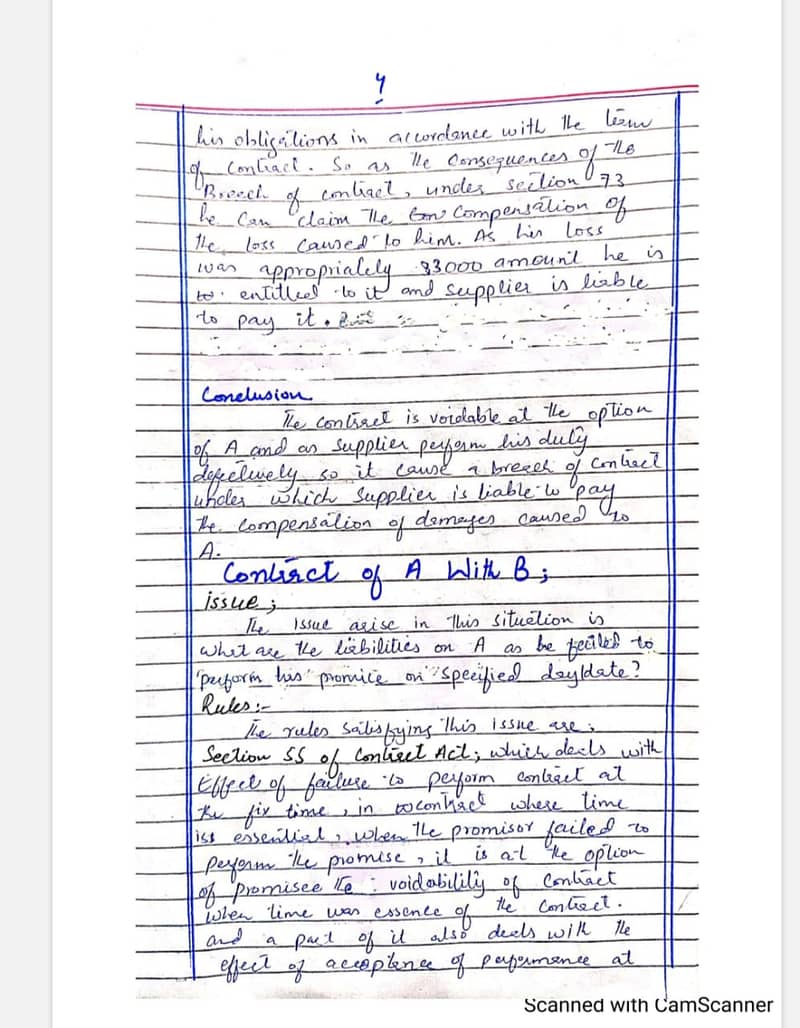 4
his obligations in accordance with the term
of contract. So as the consequences of the
Breech of contract, under section 73
he can claim the compensation of
the loss caused to him. As his loss
was appropriately 33000 amount he is
to entitled to it and supplier is liable
to pay it.
Conclusion
The contract is voidable at the option
of A and as supplier perform his duty
defectively so it cause a breech of contract
under which supplier is liable to pay
the compensation of demages caused to
A.
Contract of A With B;
issue;
The issue arise in this situation is
what are the liabilities on A as he failed to
perform his promice on specified day/date?
Rules:-
The rules satisfying this issue are;
Section 55 of Contract Act; which deals with
Effect of failure to perform contract at
the fix time, in contract where time
iss essential, when the promisor failed to
perform the promise, it is at the option
of promisee the : voidability of contract
when time was essence of the contract.
and a part of it also deals with the
effect of acceptence of performence at
Scanned with CamScanner